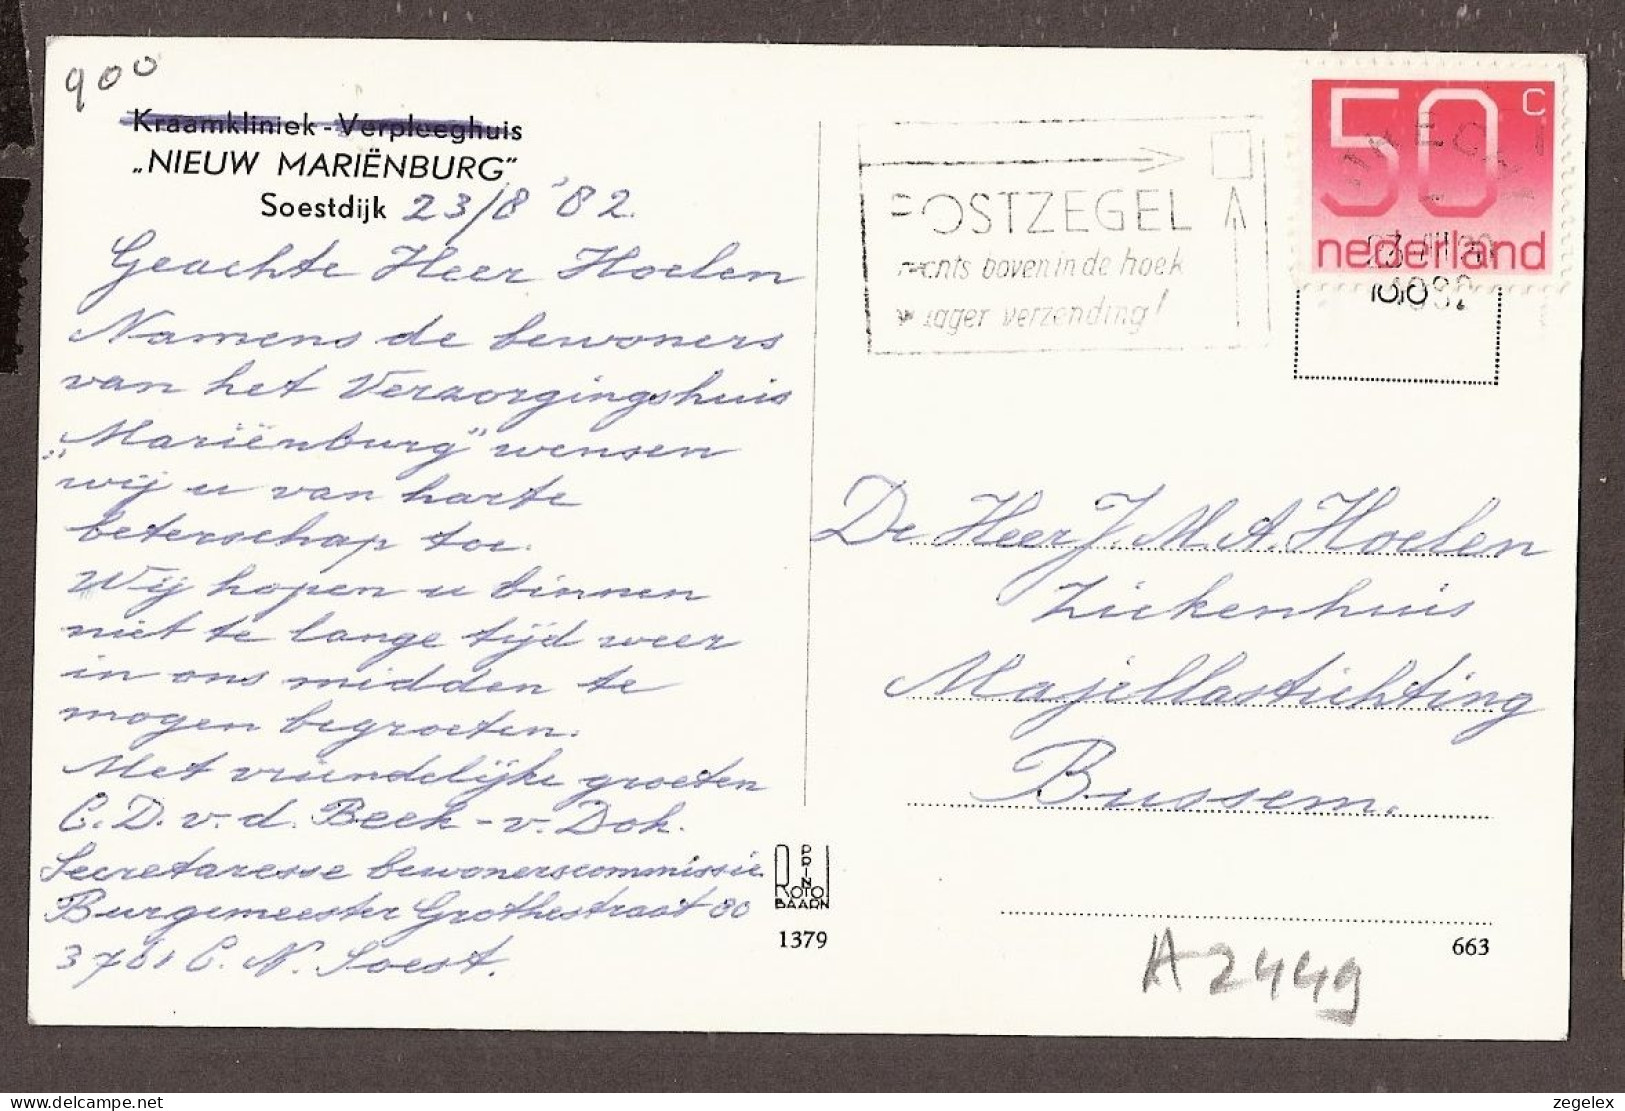 900
Kraamkliniek - Verpleeghuis
„NIEUW MARIËNBURG"
Soestdijk 23/8 '82.
Geachte Heer Hoelen
Namens de bewoners
van het Verzorgingshuis
„Mariënburg" wensen
wij u van harte
beterschap toe.
Wij hopen u binnen
niet te lange tijd weer
in ons midden te
mogen begroeten.
Met vriendelijke groeten
C.D. v.d. Beek - v. Dok.
Secretaresse bewonerscommissie
Burgemeester Grothestraat 80
3761 C.N. Soest.
ROTO PRINT
BAARN
1379
POSTZEGEL
rechts boven in de hoek
verzending!
50 c
nederland
1982
De Heer J.M.A. Hoelen
Ziekenhuis
Majellastichting
Bussem.
663
A2449
zegelex
delcampe.net